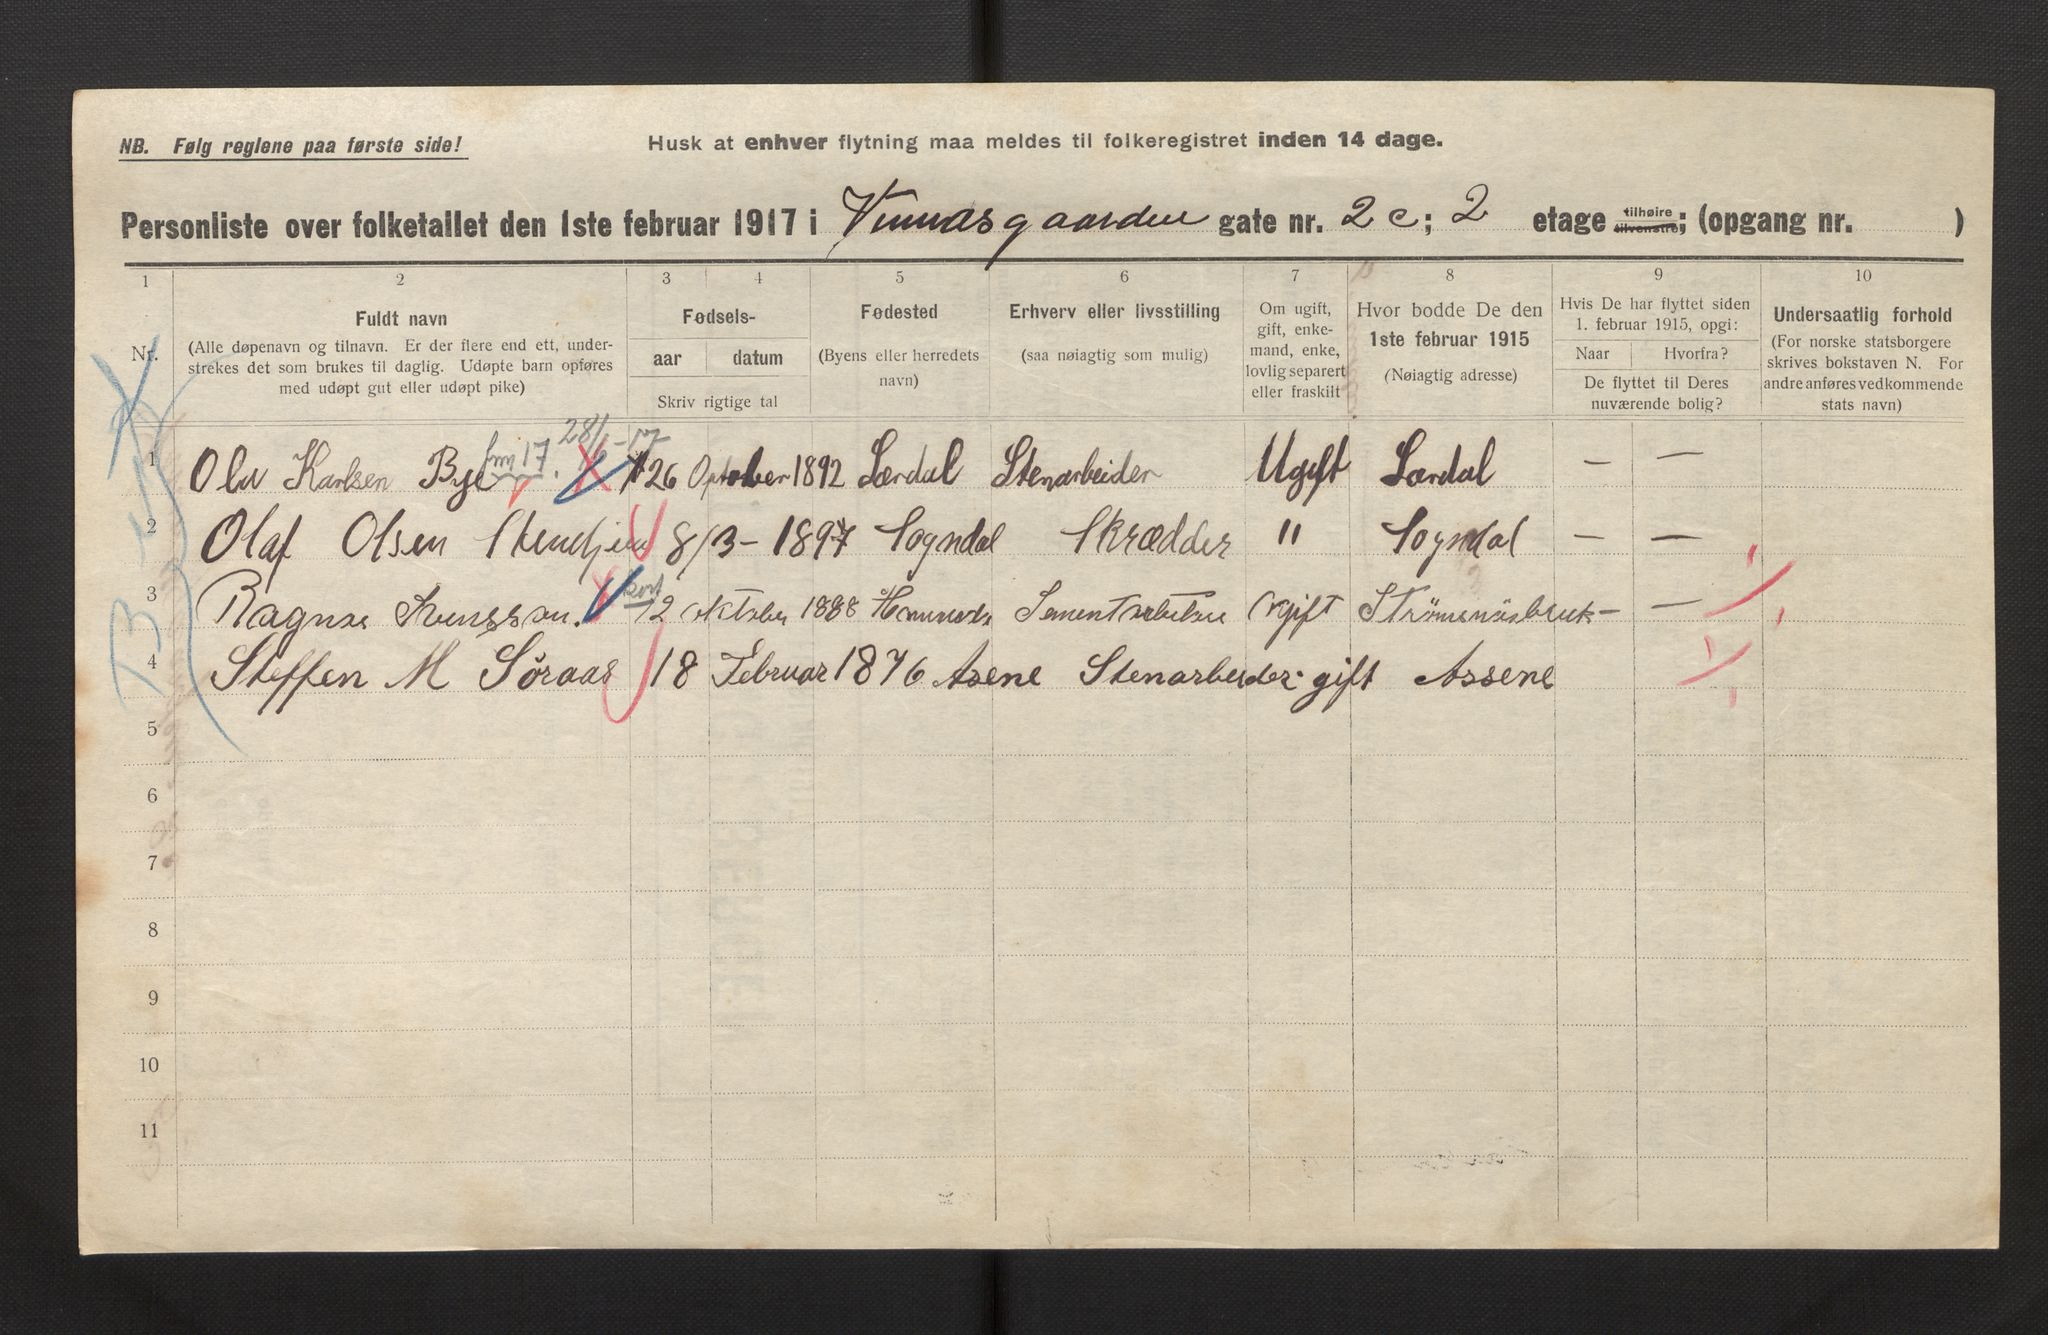 NB. Følg reglene paa første side!
Husk at enhver flytning maa meldes til folkeregistret inden 14 dage.
Personliste over folketallet den 1ste februar 1917 i gate nr. 2 c; 2 etage tilhøire tilvenstre; (opgang nr. )
1 2 3 4 5 6 7 8 9 10
Nr.
Fuldt navn
(Alle døpenavn og tilnavn. Er der flere end ett, under-
strekes det som brukes til daglig. Udøpte barn opføres
med udøpt gut eller udøpt pike)
Fødsels-
aar datum
Skriv rigtige tal
Fødested
(Byens eller herredets
navn)
Erhverv eller livsstilling
(saa nøiagtig som mulig)
Om ugift,
gift, enke-
mand, enke,
lovlig separert
eller fraskilt
Hvor bodde De den
1ste februar 1915
(Nøiagtig adresse)
Hvis De har flyttet siden
1. februar 1915, opgi:
Naar Hvorfra?
De flyttet til Deres
nuværende bolig?
Undersaatlig forhold
(For norske statsborgere
skrives bokstaven N. For
andre anføres vedkommende
stats navn)
1 Olav Karlsen Bye 26 Oktober 1892 Lærdal Stenarbeider Ugift Lærdal — —
2 Olaf Olsen 8/3 - 1897 Sogndal Skrædder " Sogndal — —
3 Ragnar 12 oktober 1888 Ugift Strömsnäsbruk — —
4 Steffen M Søraas 18 Februar 1876 Asene Stenarbeider gift Assene
5
6
7
8
9
10
11